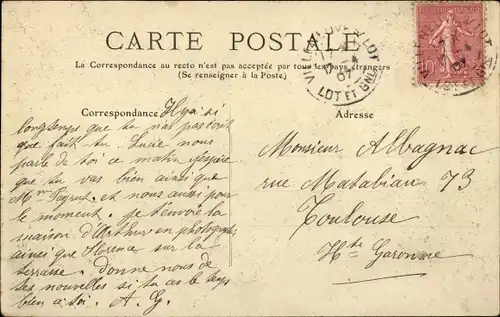 CARTE POSTALE
La Correspondance au recto n'est pas acceptée par tous les pays étrangers
(Se renseigner à la Poste)
Correspondance
Adresse
VILLENEUVE S. LOT
LOT ET GNE
07
10
Il y a si
longtemps que tu n'as pas écrit
que fait tu. Lucie nous
parle de toi ce matin j'espère
que tu vas bien ainsi que
Mr et nous aussi pour
le moment. Je t'envoie la
maison d'Arthur en photographie
ainsi que Florence sur la
terrasse. Donne nous de
tes nouvelles si tu as le temps
bien à toi. A. G.
Monsieur Albagnac
rue Matabiau 73
Toulouse
Hte Garonne